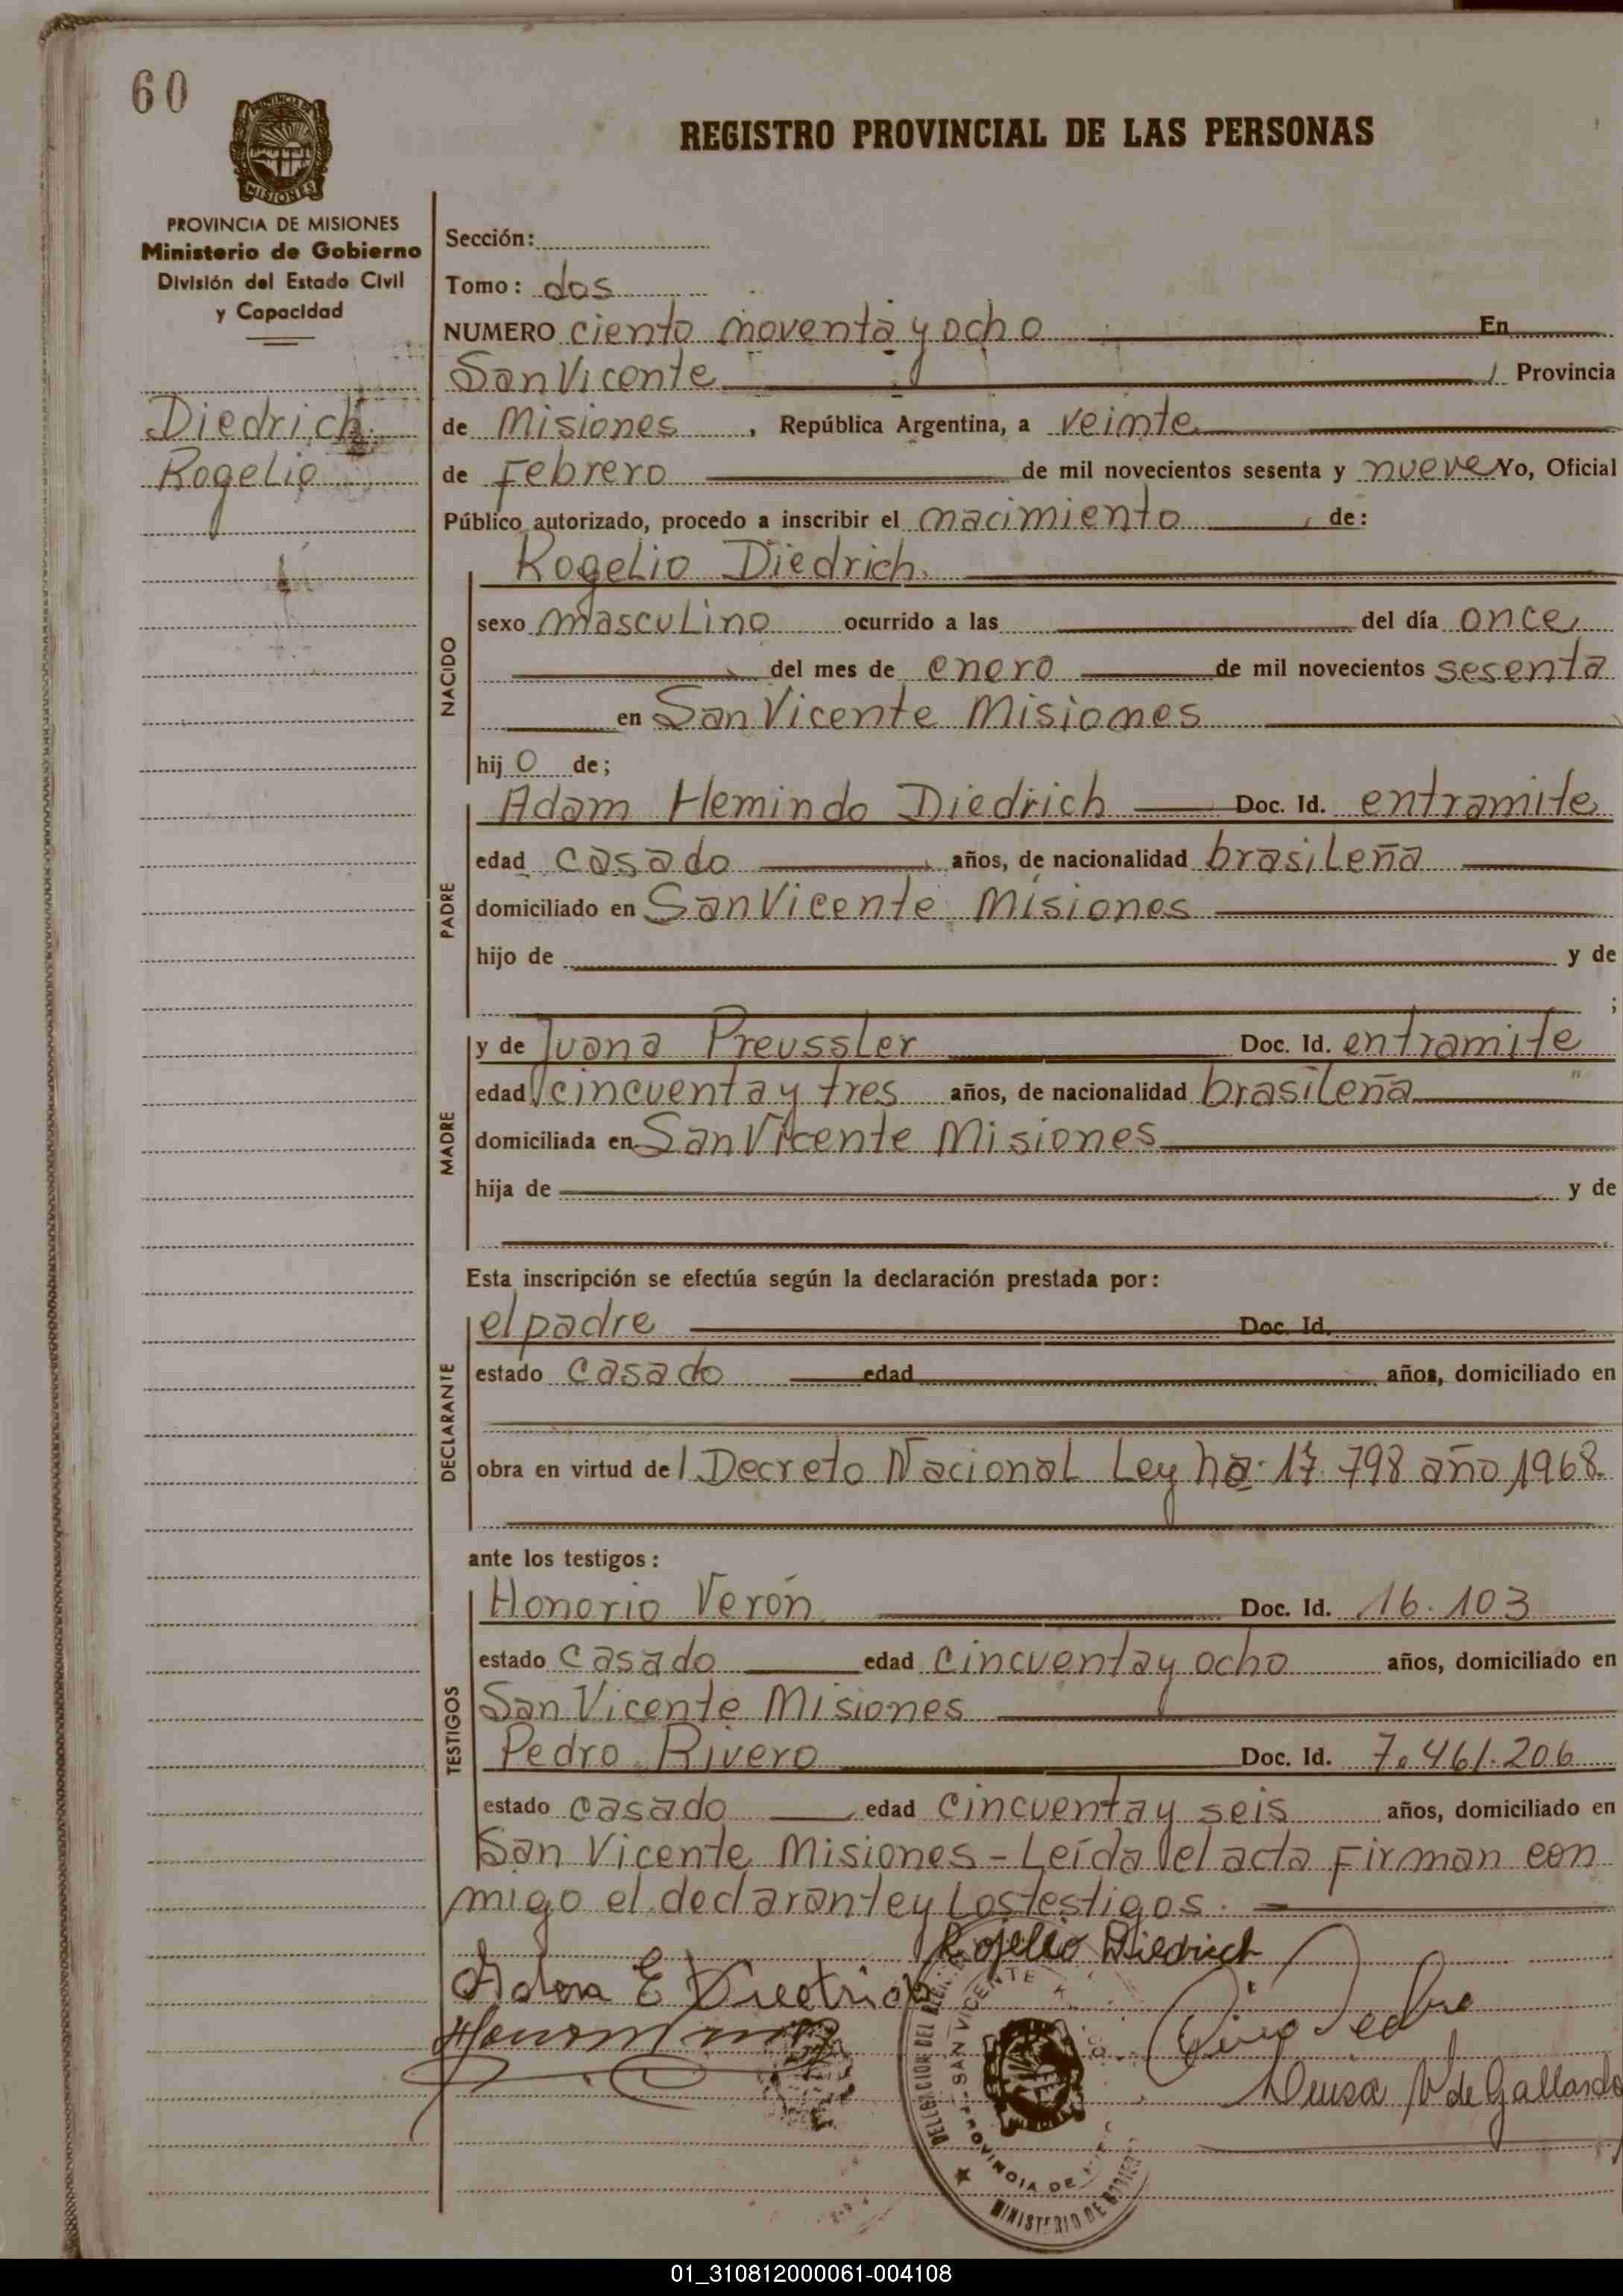 60
REGISTRO PROVINCIAL DE LAS PERSONAS
MISIONES
PROVINCIA DE MISIONES
Ministerio de Gobierno
División del Estado Civil
y Capacidad
Diedrich
Rogelio
Sección:
Tomo: dos
NUMERO ciento noventa y ocho En
San Vicente, Provincia
de Misiones, República Argentina, a veinte
de Febrero de mil novecientos sesenta y nueve Yo, Oficial
Público autorizado, procedo a inscribir el nacimiento, de:
Rogelio Diedrich
NACIDO
sexo masculino ocurrido a las del día once
del mes de enero de mil novecientos sesenta
en San Vicente Misiones
hijo de;
PADRE
Adam Hemindo Diedrich Doc. Id. entramite
edad casado años, de nacionalidad brasileña
domiciliado en San Vicente Misiones
hijo de y de
;
MADRE
y de Juana Preussler Doc. Id. entramite
edad cincuenta y tres años, de nacionalidad brasileña
domiciliada en San Vicente Misiones
hija de y de
Esta inscripción se efectúa según la declaración prestada por:
DECLARANTE
el padre Doc. Id.
estado casado edad años, domiciliado en
obra en virtud del Decreto Nacional Ley 17.798 año 1968.
ante los testigos:
TESTIGOS
Honorio Verón Doc. Id. 16.103
estado casado edad cincuenta y ocho años, domiciliado en
San Vicente Misiones
Pedro Rivero Doc. Id. 7.461.206
estado casado edad cincuenta y seis años, domiciliado en
San Vicente Misiones - Leída el acta Firman con
migo el declarante y los testigos.
Rojelio Diedrich
DELEGACION DEL
SAN VICENTE
PROVINCIA DE
MINISTERIO DE
de Gallardo
01_310812000061-004108